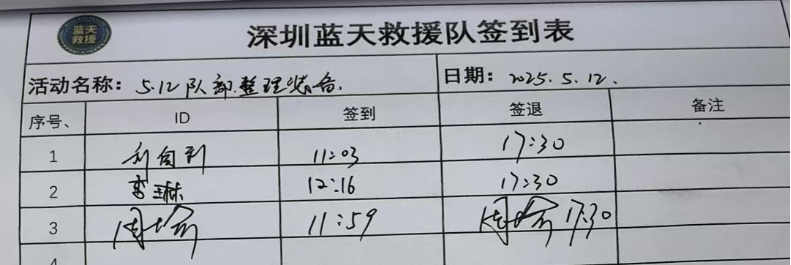 蓝天
救援
深圳蓝天救援队签到表
活动名称：5.12队部整理装备.
日期：2025.5.12.
序号、 ID 签到 签退 备注
1 11:03 17:30
2 12:16 17:30
3 11:59 17:30